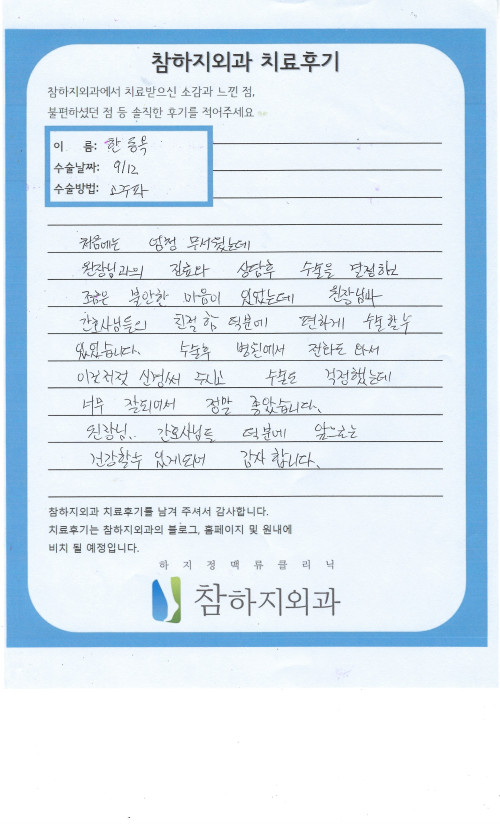 참하지외과 치료후기
참하지외과에서 치료받으신 소감과 느낀 점,
불편하셨던 점 등 솔직한 후기를 적어주세요
이 름: 한동욱
수술날짜: 9/12
수술방법: 고주파
처음에는 엄청 무서웠는데
원장님과의 진료와 상담후 수술을 결정하고
조금은 불안한 마음이 있었는데 원장님과
간호사님들의 친절함 덕분에 편하게 수술할수
있었습니다. 수술후 병원에서 전화도 와서
이것저것 신경써 주시고 수술도 걱정했는데
너무 잘되어서 정말 좋았습니다.
원장님.. 간호사님들 덕분에 앞으로는
건강할수 있게되어 감사 합니다.
참하지외과 치료후기를 남겨 주셔서 감사합니다.
치료후기는 참하지외과의 블로그, 홈페이지 및 원내에
비치 될 예정입니다.
하지정맥류클리닉
참하지외과